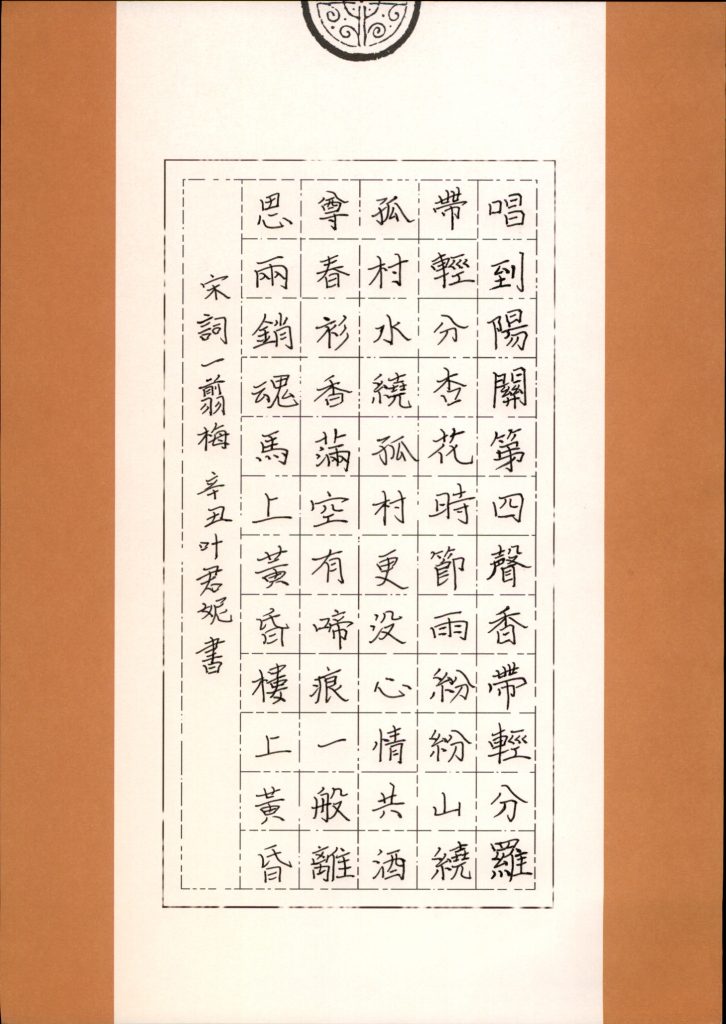 唱到陽關第四聲香帶輕分羅
帶輕分杏花時節雨紛紛山繞
孤村水繞孤村更没心情共酒
尊春衫香滿空有啼痕一般離
思兩銷魂馬上黃昏樓上黃昏
宋詞一翦梅 辛丑叶君妮書